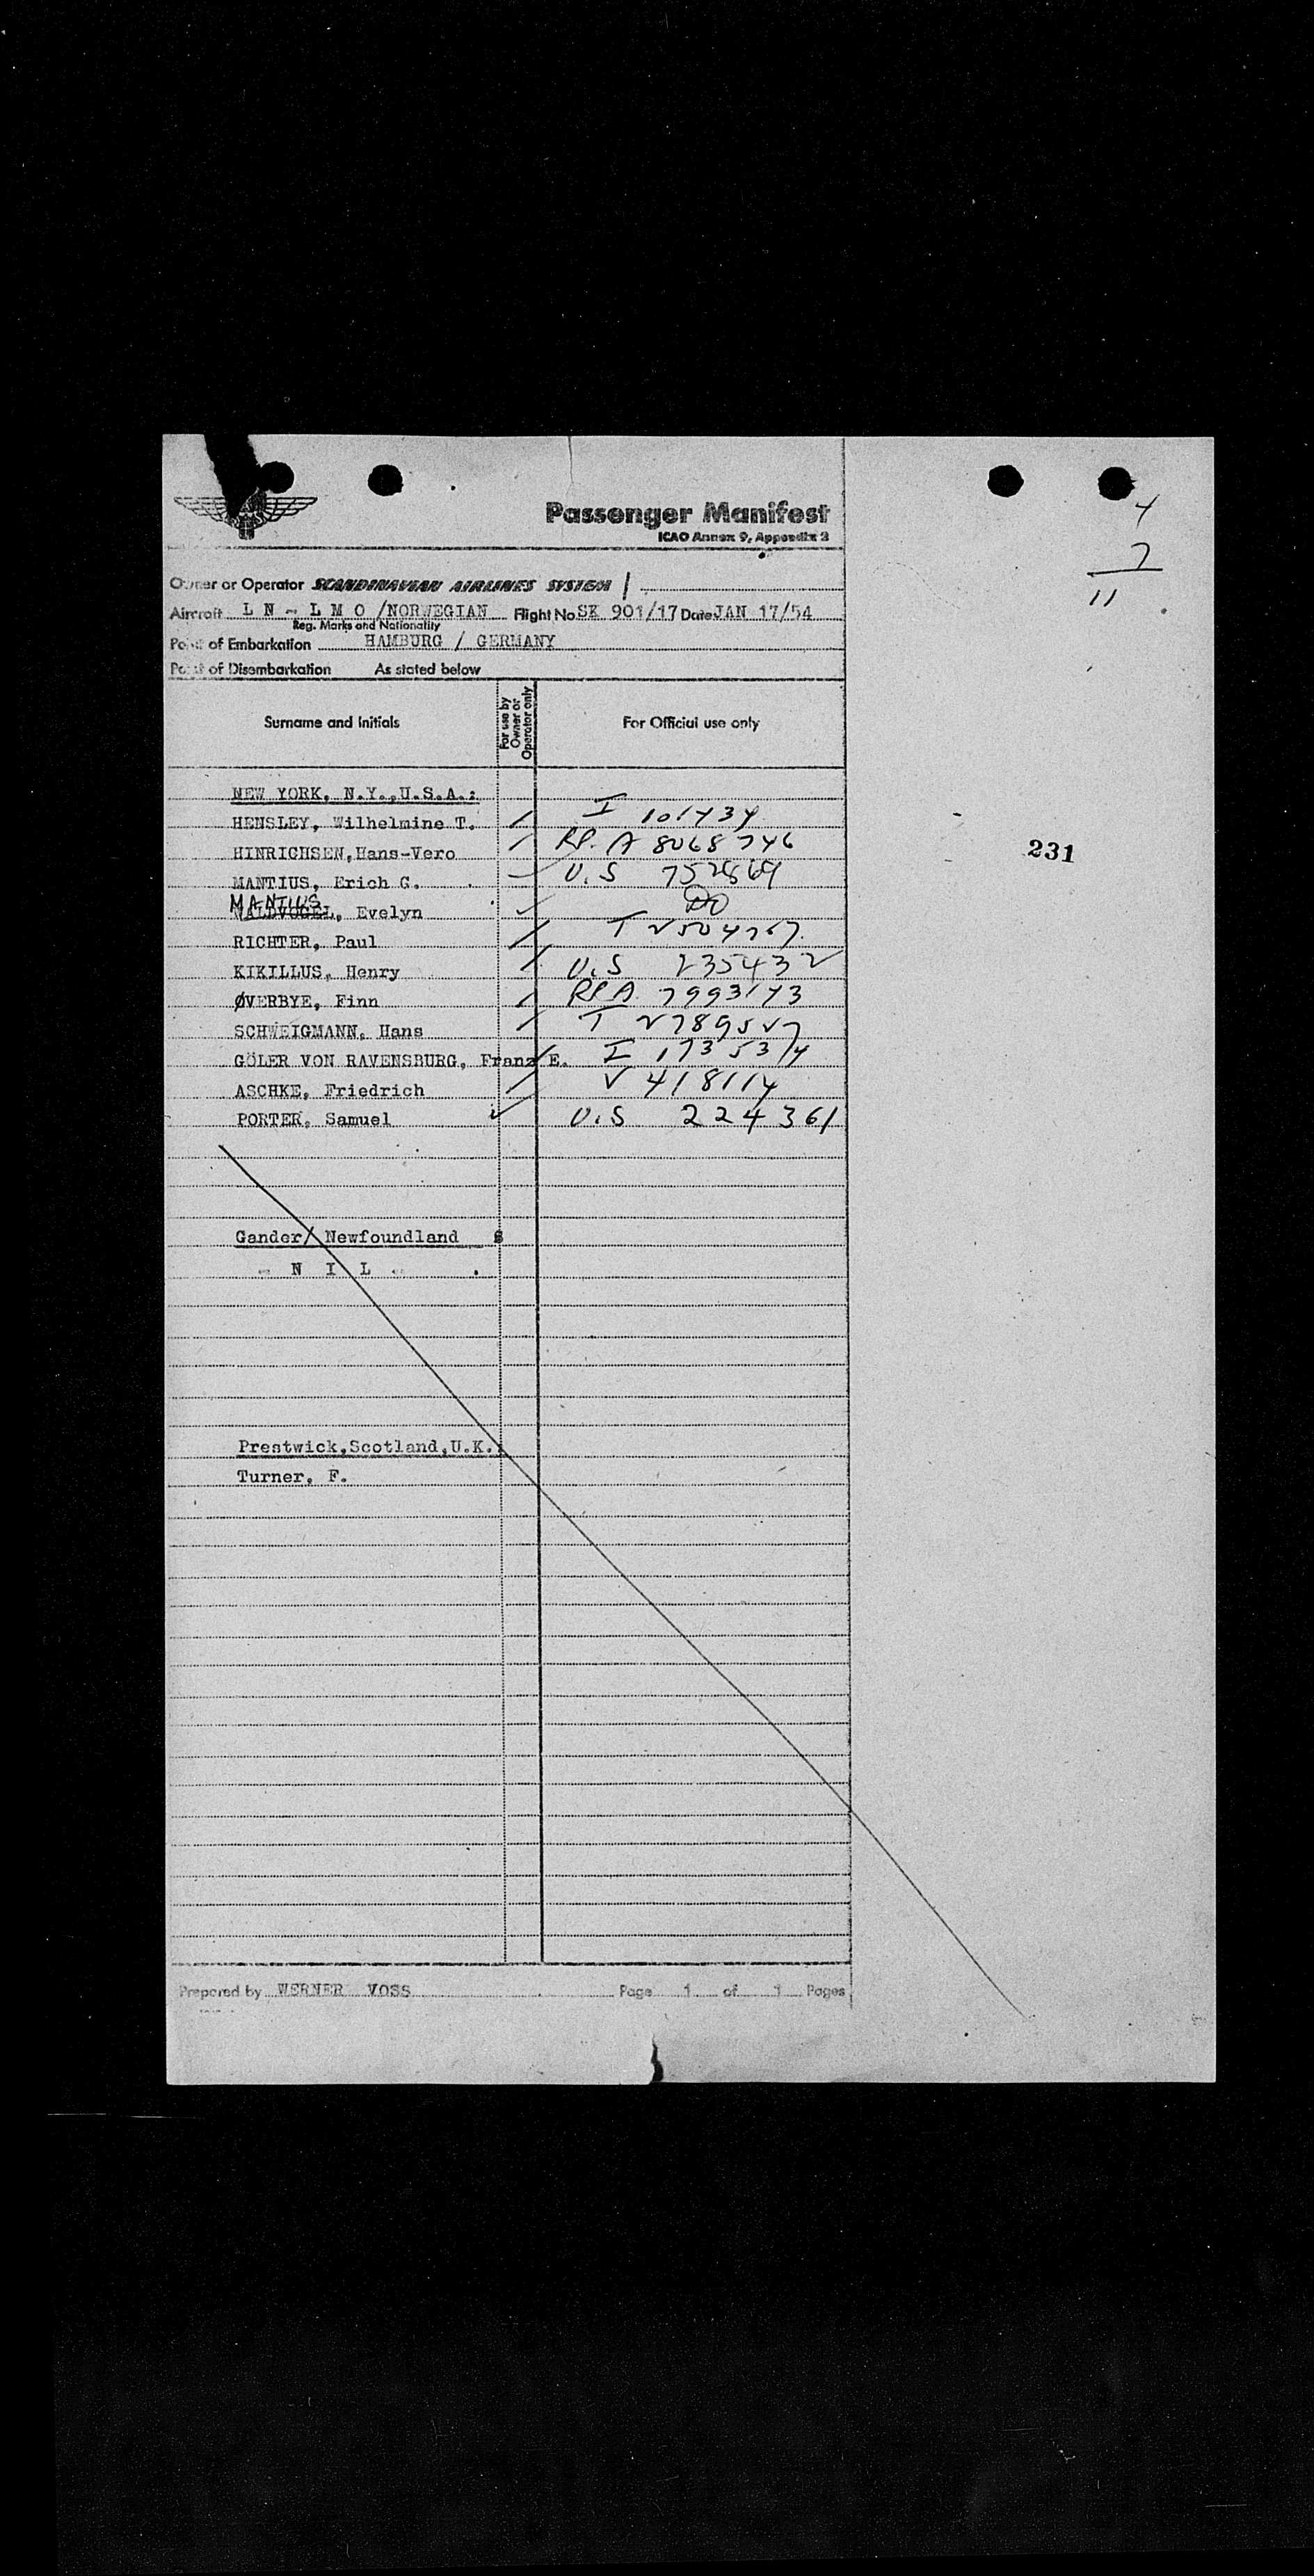 Passenger Manifest
ICAO Annex 9, Appendix 2
4
7
11
Owner or Operator SCANDINAVIAN AIRLINES SYSTEM
Aircraft L N - L M O /NORWEGIAN Flight No SK 901/17 Date JAN 17/54
Reg. Marks and Nationality
Point of Embarkation HAMBURG / GERMANY
Point of Disembarkation As stated below
Surname and Initials For use by Owner or Operator only For Official use only
NEW YORK, N.Y.,U.S.A.:
HENSLEY, Wilhelmine T. I 101434
HINRICHSEN,Hans-Vero RP. A 8068746
231
MANTIUS, Erich G. U.S
MANTIUS
WALDVOGEL, Evelyn DO
RICHTER, Paul T
KIKILLUS, Henry U.S 235432
ØVERBYE, Finn RP A 7993173
SCHWEIGMANN, Hans T
GÖLER VON RAVENSBURG, Franz E. I
ASCHKE, Friedrich V 418114
PORTER, Samuel U.S 224361
Gander/ Newfoundland :
- N I L -
Prestwick,Scotland,U.K.:
Turner, F.
Prepared by WERNER VOSS Page 1 of 1 Pages